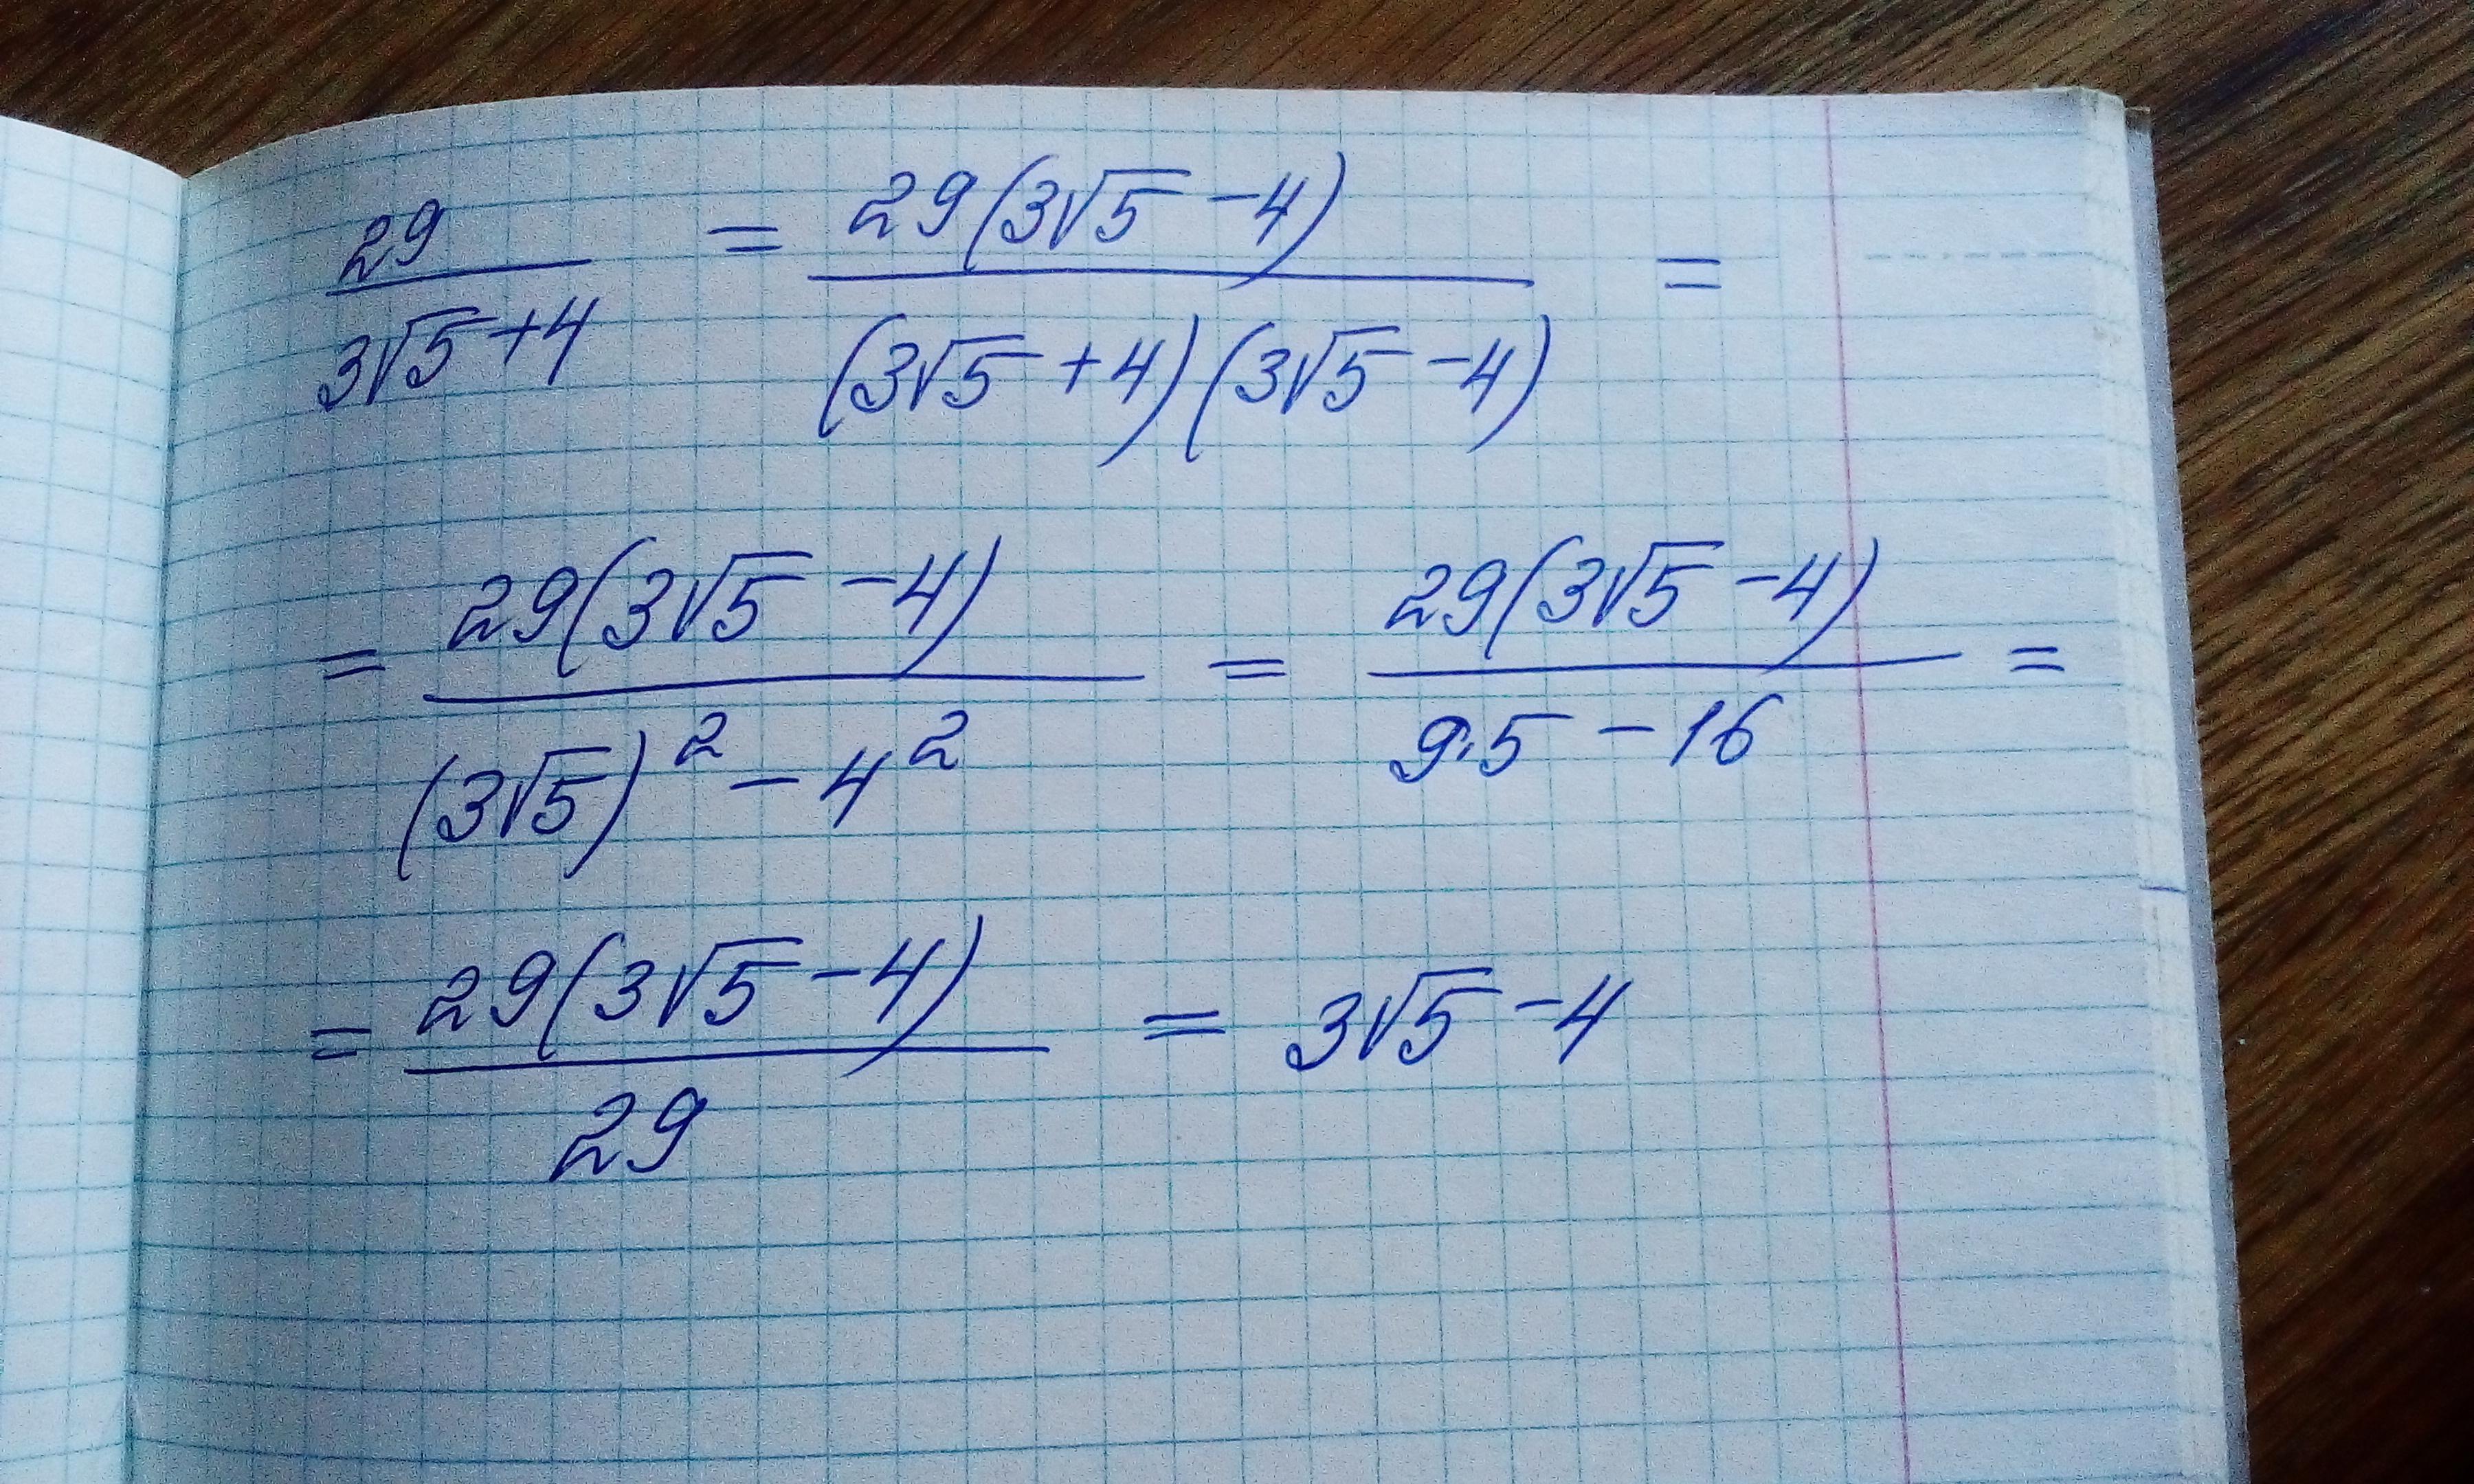 29/(3√5+4) = 29(3√5-4)/((3√5+4)(3√5-4)) =
= 29(3√5-4)/((3√5)²-4²) = 29(3√5-4)/(9·5-16) =
= 29(3√5-4)/29 = 3√5-4